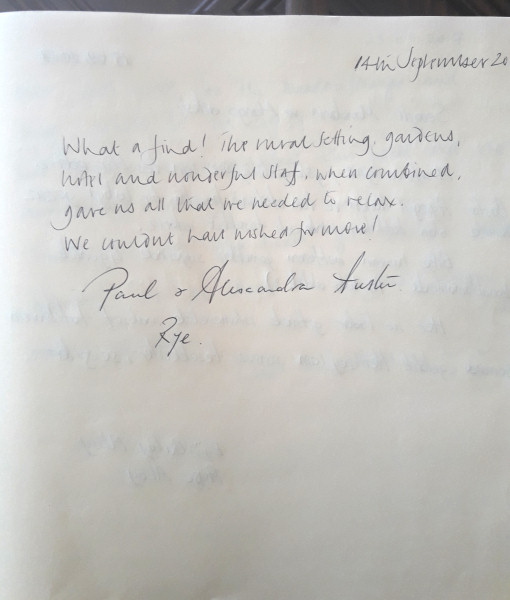 14th September 20
What a find! The rural setting, gardens,
hotel and wonderful staf, when combined,
gave us all that we needed to relax.
We couldnt have wished for more!
Paul & Alexandra Austin.
Rye.